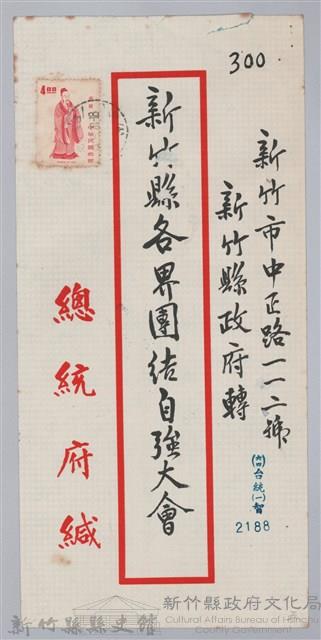 300
新竹市中正路一一二號
新竹縣政府轉
新竹縣各界團結自強大會
總統府緘
台統(一)智
2188
4.00
新竹縣縣史館
新竹縣政府文化局
Cultural Affairs Bureau of Hsinchu
County Government